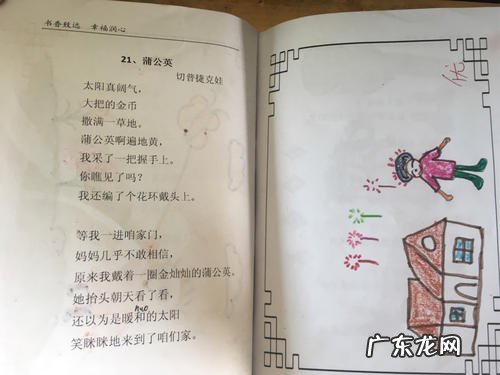 书香致远 幸福润心
21、蒲公英
切普捷克娃
太阳真阔气，
大把的金币
撒满一草地。
蒲公英啊遍地黄，
我采了一把握手上。
你瞧见了吗？
我还编了个花环戴头上。
等我一进咱家门，
妈妈几乎不敢相信，
原来我戴着一圈金灿灿的蒲公英。
她抬头朝天看了看，
huo
还以为是暖和的太阳
笑眯眯地来到了咱们家。
优
广东龙网